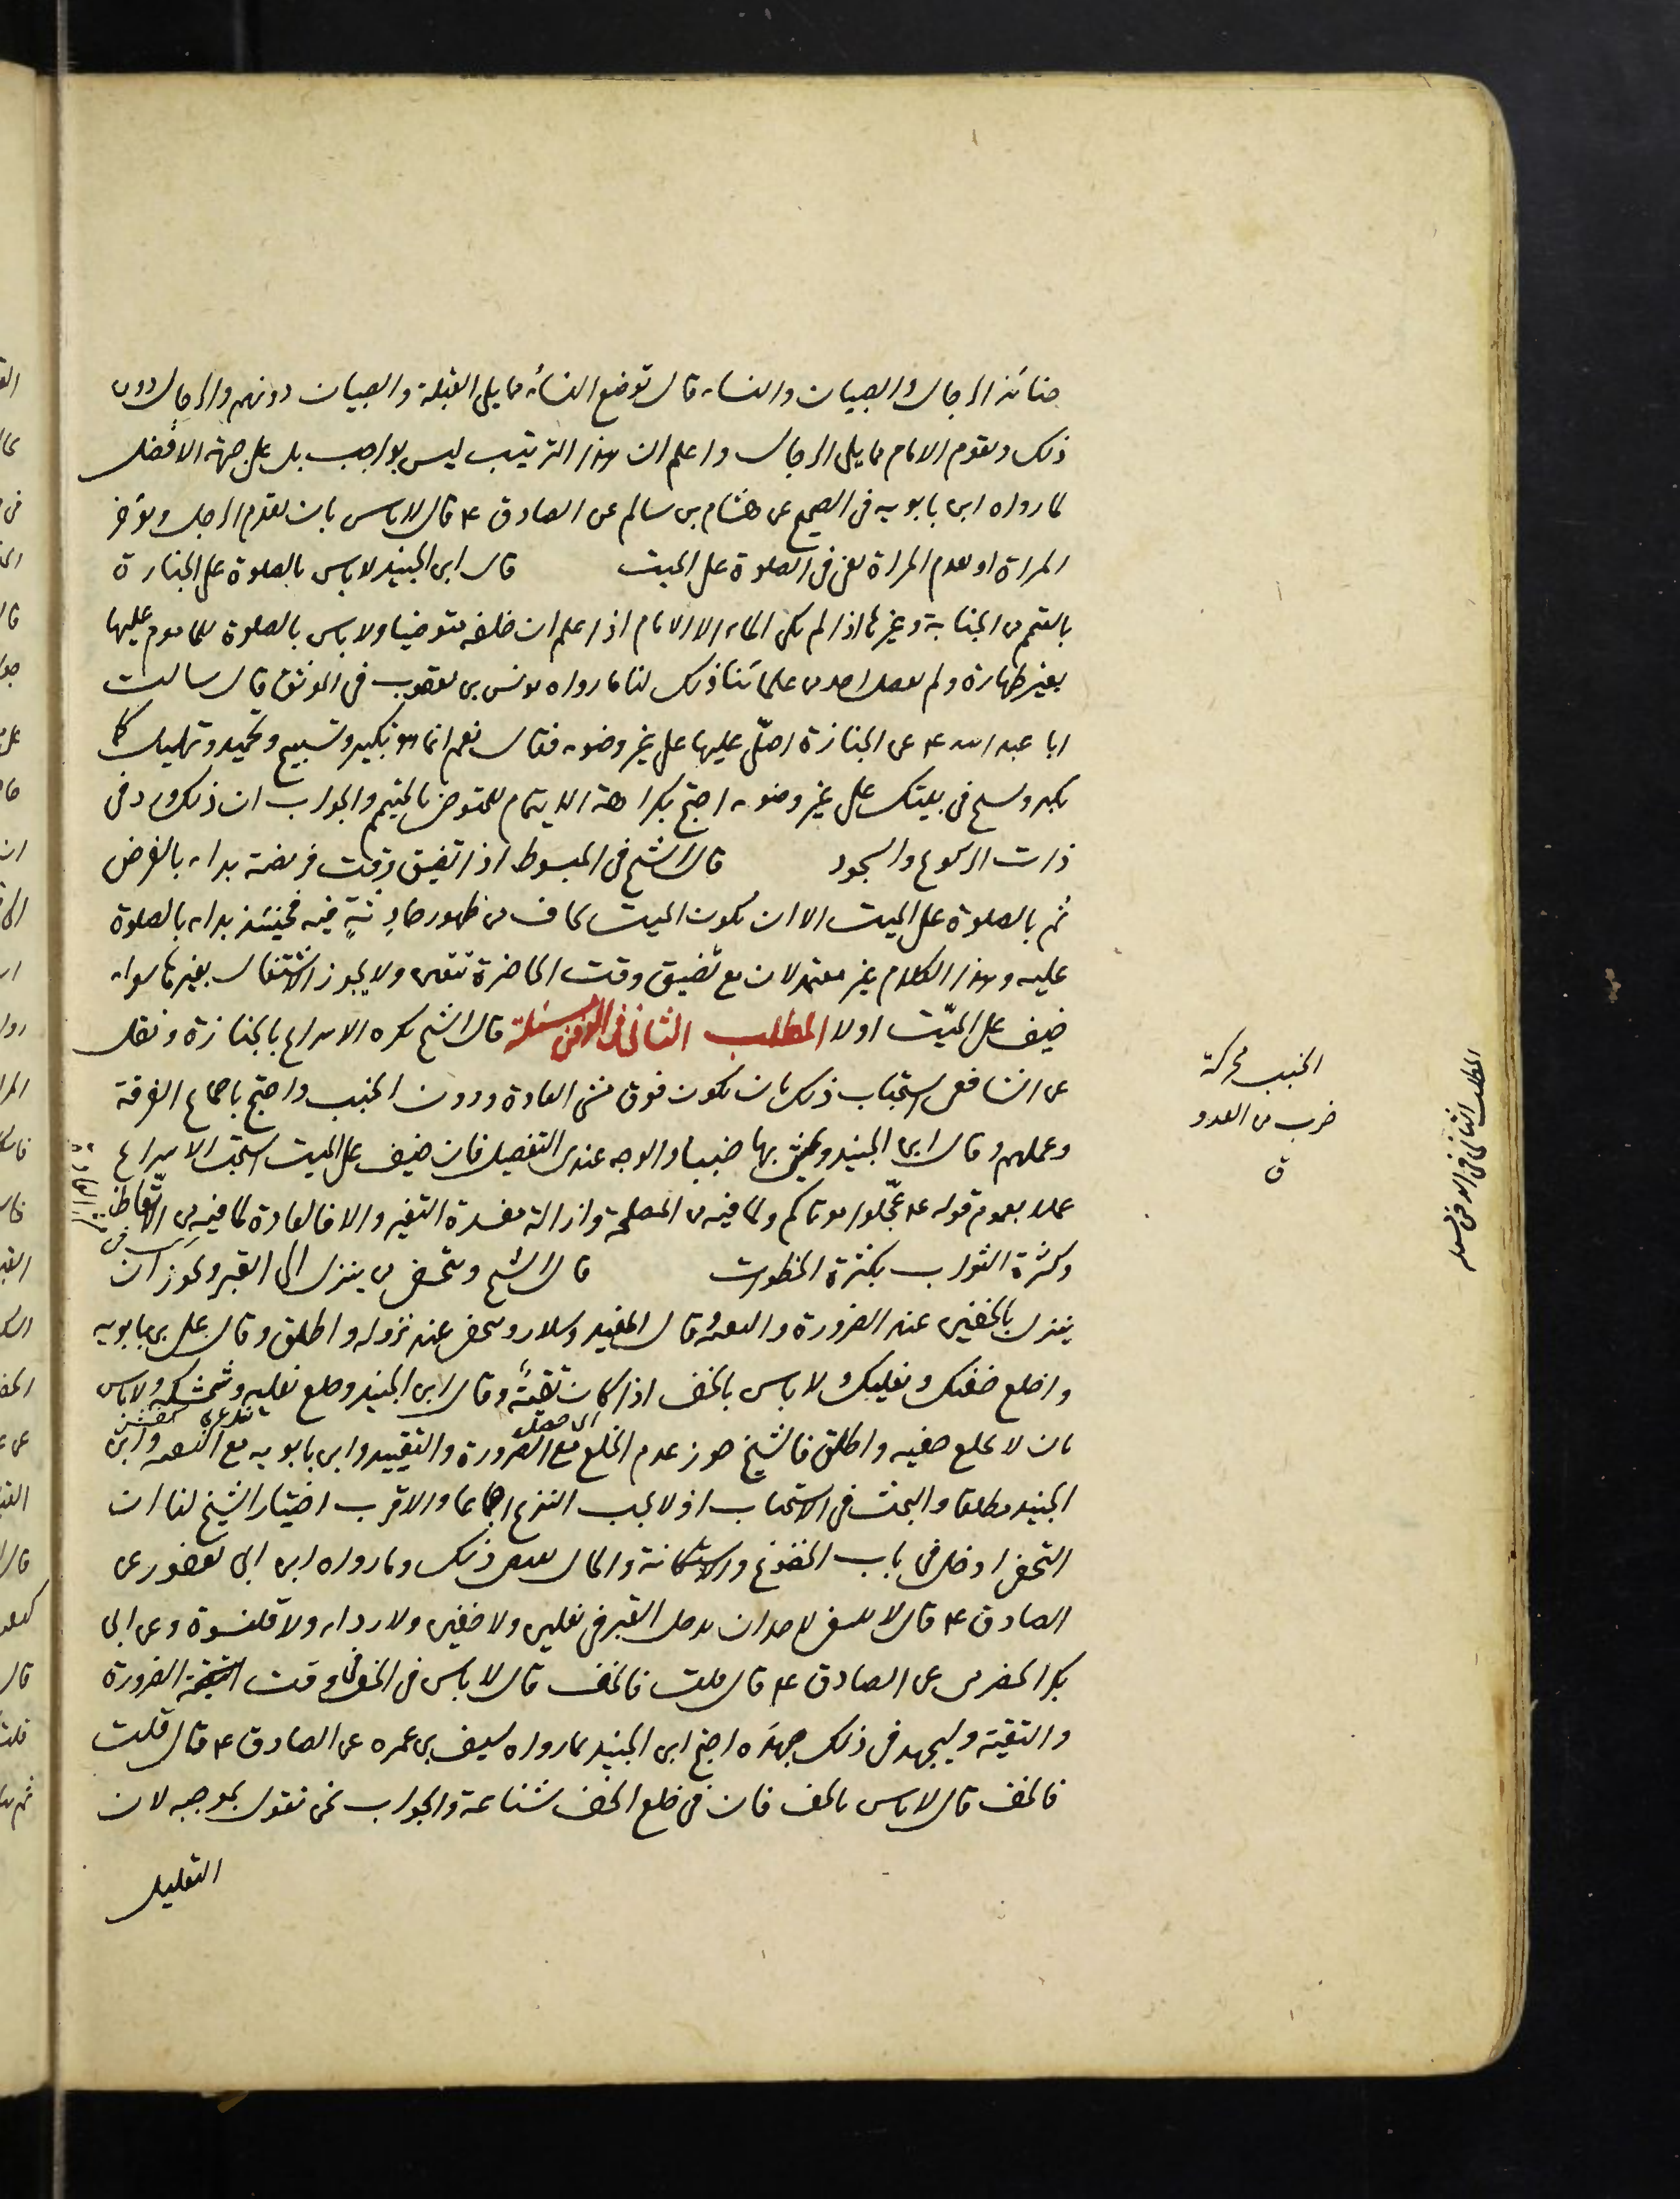 جنائز الرجال والصبيان والنساء قال توضع النساء مما يلي القبلة والصبيان دونهم والرجال دون
ذلك ويقوم الامام مما يلي الرجال واعلم ان هذا الترتيب ليس بواجب بل على جهة الافضل
لما رواه ابن بابويه في الصحيح عن هشام بن سالم عن الصادق ع قال لا باس بان يقدم الرجل وتؤخر
المراة او يقدم المراة يعني في الصلوة على الميت قال ابن الجنيد لا باس بالصلوة على الجنازة
بالتيمم من الجنابة وغيرها اذا لم يكن الماء الا للامام اذا علم ان خلفه متوضيا ولا باس بالصلوة للماموم عليها
بغير طهارة ولم يفصل احد من علمائنا ذلك لنا ما رواه يونس بن يعقوب في الموثق قال سالت
ابا عبد الله ع عن الجنازة اصلّي عليها على غير وضوء فقال نعم انما هو تكبير وتسبيح وتحميد وتهليل كما
يكبر ويسبح في بيتك على غير وضوء احتج بكراهة الايتمام للمتوضئ بالمتيمم والجواب ان ذلك ورد في
ذات الركوع والسجود قال الشيخ في المبسوط اذا تضيق وقت فريضة بداء بالفرض
ثم بالصلوة على الميت الا ان يكون الميت يخاف من ظهور حادثةٍ فيه فحينئذ بداء بالصلوة
عليه وهذا الكلام غير معتمد لان مع تضيق وقت الحاضرة تتعين ولا يجوز الاشتغال بغيرها سواء
خيف على الميّت اولا المطلب الثاني في الدفن مسئلة قال الشيخ يكره الاسراع بالجنازة ونقل
عن الشافعي استحباب ذلك بان يكون فوق مشي العادة ودون الخبب واحتج باجماع الفرقة
وعملهم وقال ابن الجنيد ويمشي بها خببا والوجه عندي التفصيل فان خيف على الميت استحب الاسراع
عملا بعموم قوله ع عجّلوا موتاكم ولما فيه من المصلحة وازالة مفسدة التغير والا فالعادة لما فيه من الاتّعاظ
وكثرة الثواب بكثرة الخطوات قال الشيخ ويتحفى من ينزل الى القبر ويجوز ان
ينزل بالخفين عند الضرورة والتقية وقال المفيد وسلار ويتحفى عند نزوله واطلق وقال علي بن بابويه
واخلع خفك ونعليك ولا باس بالخف اذا كان تقيّة وقال ابن الجنيد ويخلع نعليه وشمشكه ولا باس
بان لا يخلع خفيه واطلق فالشيخ جوز عدم الخلع مع الضرورة والتقييد وابن بابويه مع التقية وابن
الجنيد مطلقا والبحث في الاستحباب اذ لا يجب النزع اجماعا والاقرب اختيار الشيخ لنا ان
التحفي ادخل في باب الخضوع والاستكانة والحال يقتضي ذلك وما رواه ابن ابي يعفور عن
الصادق ع قال لا ينبغي لاحد ان يدخل القبر في نعلين ولا خفين ولا رداء ولا قلنسوة وعن ابي
بكر الحضرمي عن الصادق ع قال قلت فالخف قال لا باس في الخف في وقت الضرورة
والتقية وليجهد في ذلك جهده احتج ابن الجنيد بما رواه سيف بن عميرة عن الصادق ع قال قلت
فالخف قال لا باس بالخف فان في خلع الخف شناعة والجواب نحن نقول بموجبه لان
التعليل
الخبب محركة
ضرب من العدو
ق
المطلب الثاني في الدفن مسئلة